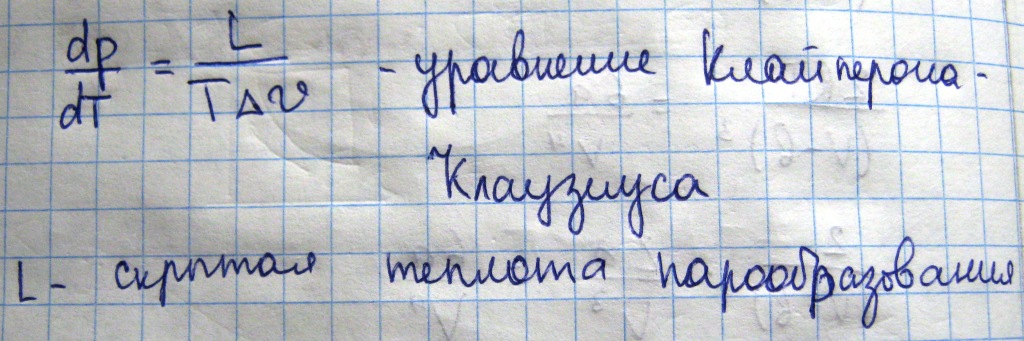 dp/dT = L/(TΔv) - уравнение Клайперона-
Клаузиуса
L - скрытая теплота парообразования